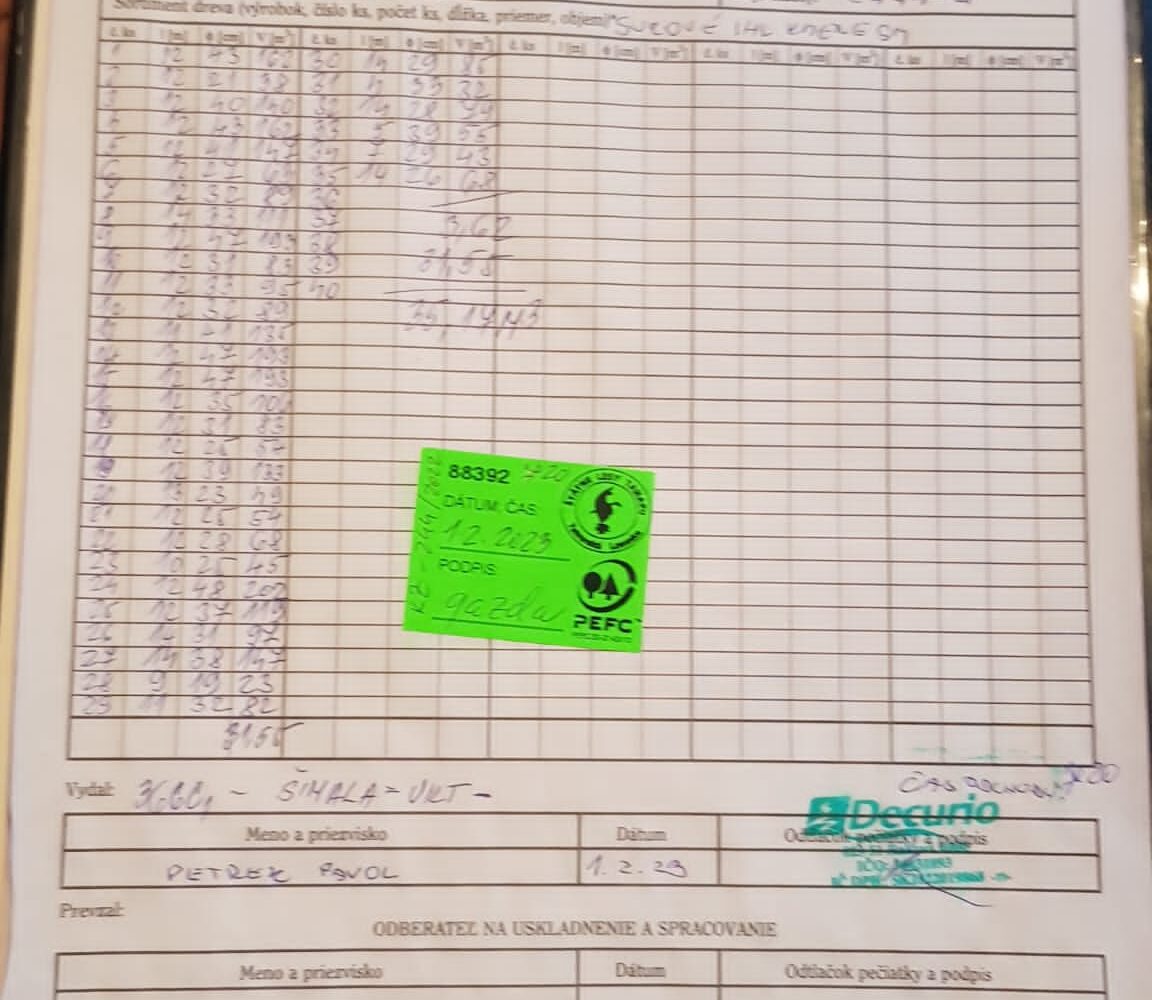 Sortiment dreva (výrobok, číslo ks, počet ks, dĺžka, priemer, objem)* SUROVÉ IHL KMEŇE SM
č. ks l [m] ø [cm] V [m³] č. ks l [m] ø [cm] V [m³] č. ks l [m] ø [cm] V [m³] č. ks l [m] ø [cm] V [m³] č. ks l [m] ø [cm] V [m³]
1 12 43 162 30 14 29 85
2 12 21 38 31 33 32
3 12 40 140 32 14 28
4 12 43 162 33 5 39 55
5 12 41 147 34 7 29 43
6 12 27 63 35 14 26 68
7 12 32 89 36
8 14 33 111 37 3,62
9 12 47 193 38
10 12 31 83 39 31,55
11 12 33 95 40
12 12 32 89
13 11 41 135
14 12 47 193
15 12 47 193
16 12 35 104
17 12 31 83
18 12 25
19 12 39 133
20 13 23 49
21 12 25 54
22 12 28 68
23 10 25 45
24 12 48 202
25 12 37 119
26 14 31 97
27 14 38 147
28 9 19 23
29 11 32 82
31,55
88392
DÁTUM, ČAS:
1.2.2023
PODPIS:
gazda
ŠTÁTNE LESY TANAPU
PEFC
Vydal: ŠIMALA - VKT -
Decurio
Meno a priezvisko Dátum Odtlačok pečiatky a podpis
PETREK PAVOL 1. 2. 23
Prevzal:
ODBERATEĽ NA USKLADNENIE A SPRACOVANIE
Meno a priezvisko Dátum Odtlačok pečiatky a podpis